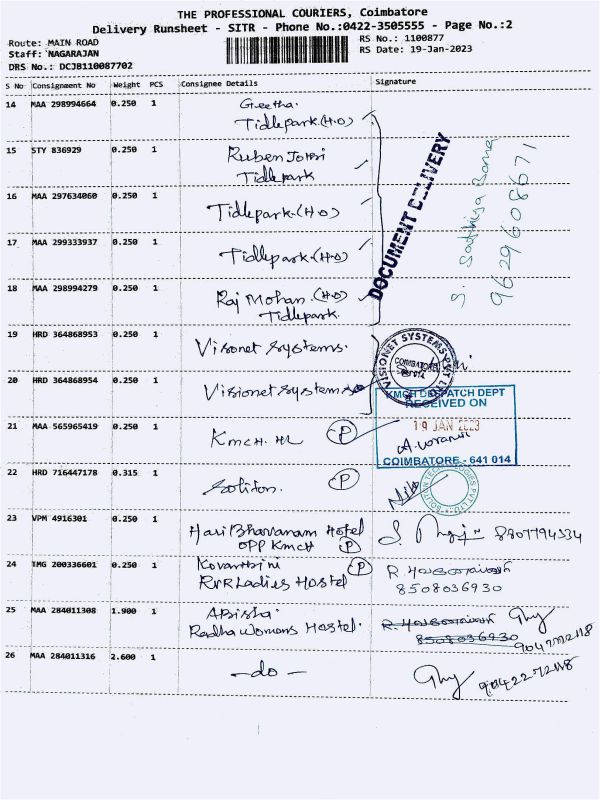 THE PROFESSIONAL COURIERS, Coimbatore
Delivery Runsheet - SITR - Phone No.:0422-3505555 - Page No.:2
Route: MAIN ROAD
Staff: NAGARAJAN
DRS No.: DCJB110087702
RS No.: 1100877
RS Date: 19-Jan-2023
S No Consignment No Weight PCS Consignee Details Signature
14 MAA 298994664 0.250 1 Geetha.
Tidlepark.(H.O)
15 STY 836929 0.250 1 Ruben
Tidlepark
16 MAA 297634060 0.250 1 Tidlepark.(H.O)
17 MAA 299333937 0.250 1 Tidlepark.(H.O)
18 MAA 298994279 0.250 1 Raj Mohan. (H.O)
Tidlepark.
DOCUMENT DELIVERY
S.
9629608671
19 HRD 364868953 0.250 1 Visonet Systems.
20 HRD 364868954 0.250 1 Visionet Systems
VISIONET SYSTEMS PVT LTD
COIMBATORE
KMCH DESPATCH DEPT
RECEIVED ON
19 JAN 2023
COIMBATORE - 641 014
21 MAA 565965419 0.250 1 KMCH. P
22 HRD 716447178 0.315 1 Soliton. P
23 VPM 4916301 0.250 1 Hari Bhavanam Hotel
OPP KMCH P
S. 8807794334
24 TMG 200336601 0.250 1 Kovarthini P
RVR Ladies Hostel
R.
8508036930
25 MAA 284011308 1.900 1 Abisha.
Radha Womens Hostel.
R.
8508036930
26 MAA 284011316 2.600 1 -do-